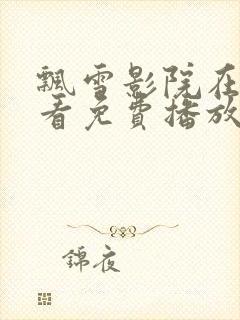 飄雪影院在
看免費播放
錦夜